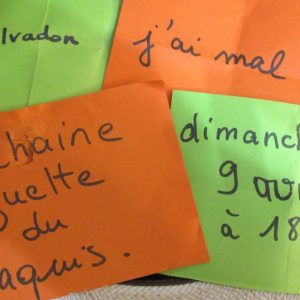 lvadon
j'ai mal
chaine
uette
du
aquis.
dimanch
9 av
à 18